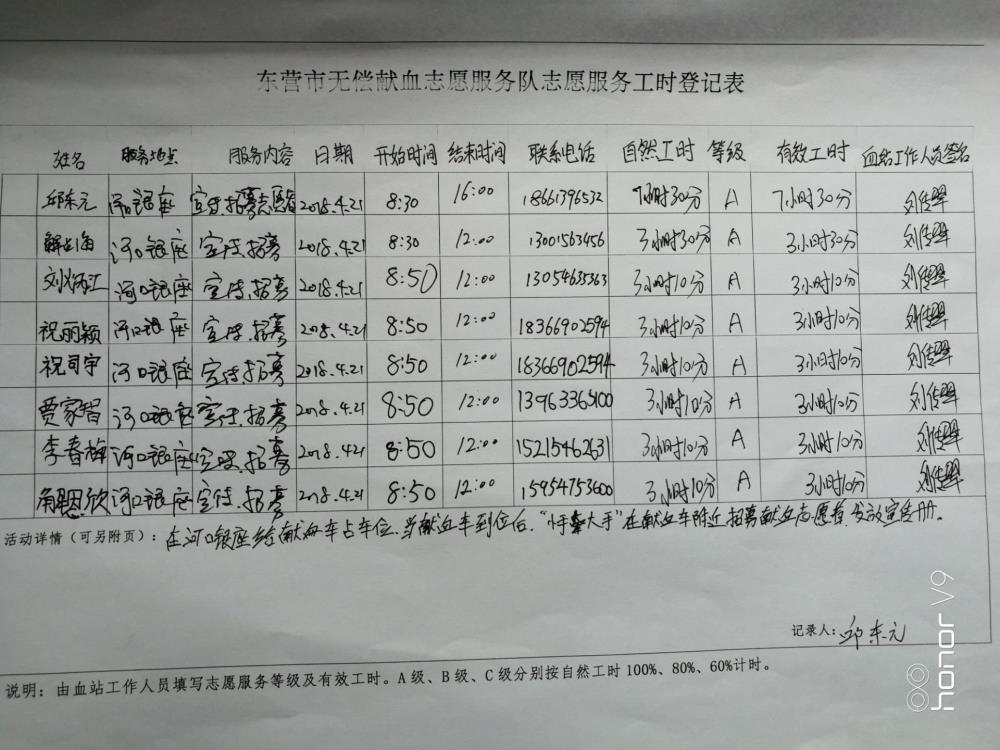 东营市无偿献血志愿服务队志愿服务工时登记表
姓名 服务地点 服务内容 日期 开始时间 结束时间 联系电话 自然工时 等级 有效工时 血站工作人员签名
邱东元 河口银座 宣传.招募志愿者 2018.4.21 8:30 16:00 18661396532 7小时30分 A 7小时30分
河口银座 宣传.招募 2018.4.21 8:30 12:00 13001563456 3小时30分 A 3小时30分
刘炳江 河口银座 宣传.招募 2018.4.21 8:50 12:00 13054635363 3小时10分 A 3小时10分
祝丽颖 河口银座 宣传.招募 2018.4.21 8:50 12:00 18366902594 3小时10分 A 3小时10分
祝司宇 河口银座 宣传.招募 2018.4.21 8:50 12:00 18366902594 3小时10分 A 3小时10分
贾家智 河口银座 宣传.招募 2018.4.21 8:50 12:00 13963365100 3小时10分 A 3小时10分
李春梅 河口银座 宣传.招募 2018.4.21 8:50 12:00 15215462631 3小时10分 A 3小时10分
河口银座 宣传.招募 2018.4.21 8:50 12:00 15954753600 3小时10分 A 3小时10分
活动详情（可另附页）：在河口银座给献血车占车位，当献血车到位后，“小手拉大手”在献血车附近招募献血志愿者，发放宣传册。
记录人：邱东元
说明：由血站工作人员填写志愿服务等级及有效工时。A级、B级、C级分别按自然工时100%、80%、60%计时。
honor V9